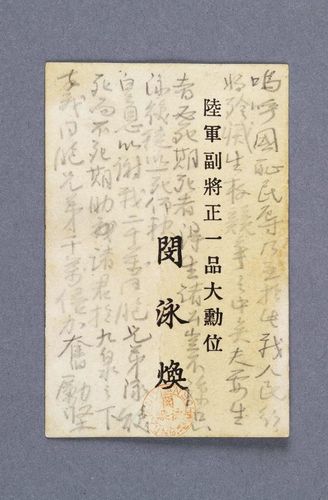 嗚呼國恥民辱乃至於此我人民行
將殄滅生存競爭之中矣夫要生
者必死期死者得生諸公豈不諒只
泳煥徒以一死仰報
皇恩以謝我二千萬同胞兄弟泳煥
死而不死期助諸君於九泉之下
幸我同胞兄弟千萬億加奮勵堅
陸軍副將正一品大勳位
閔泳煥